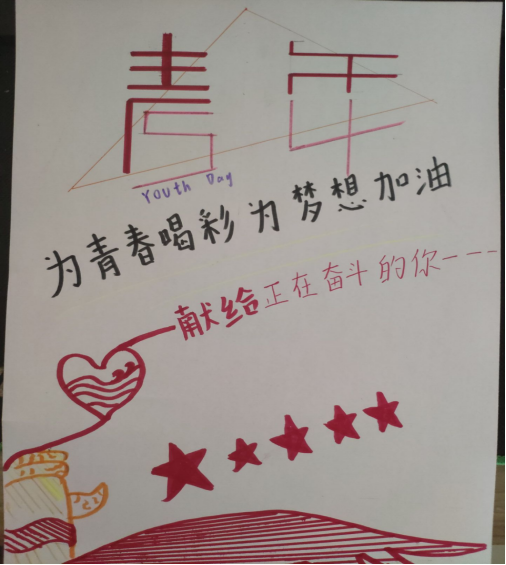 青年
Youth Day
为青春喝彩为梦想加油
献给正在奋斗的你---